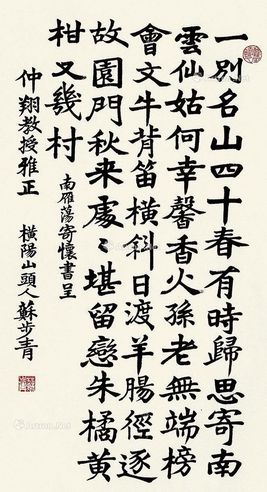 一別名山四十春有時歸思寄南
雲仙姑何幸馨香火孫老無端榜
會文牛背笛橫斜日渡羊腸徑逐
故園門秋来處〻堪留戀朱橘黃
柑又幾村
南雁蕩寄懷書呈
仲翔教授雅正
橫陽山頭人蘇步青